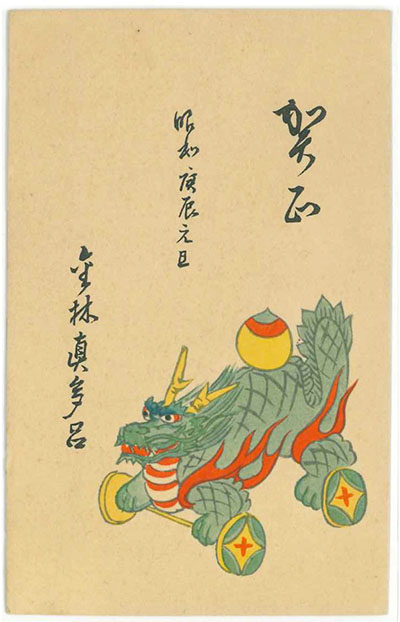 賀正
昭和庚辰元旦
金林真多呂